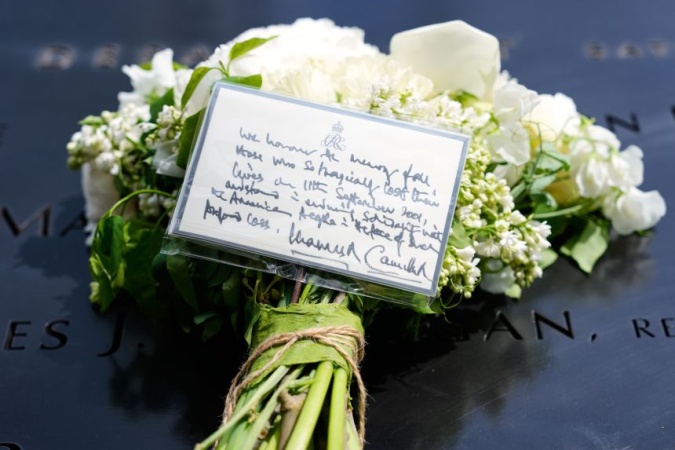 We honour the memory of all
those who so tragically lost their
lives on 11th September 2001,
and stand in enduring solidarity with
the American People in
profound loss. Charles R Camilla R
MA
N
ES J.
AN, RE